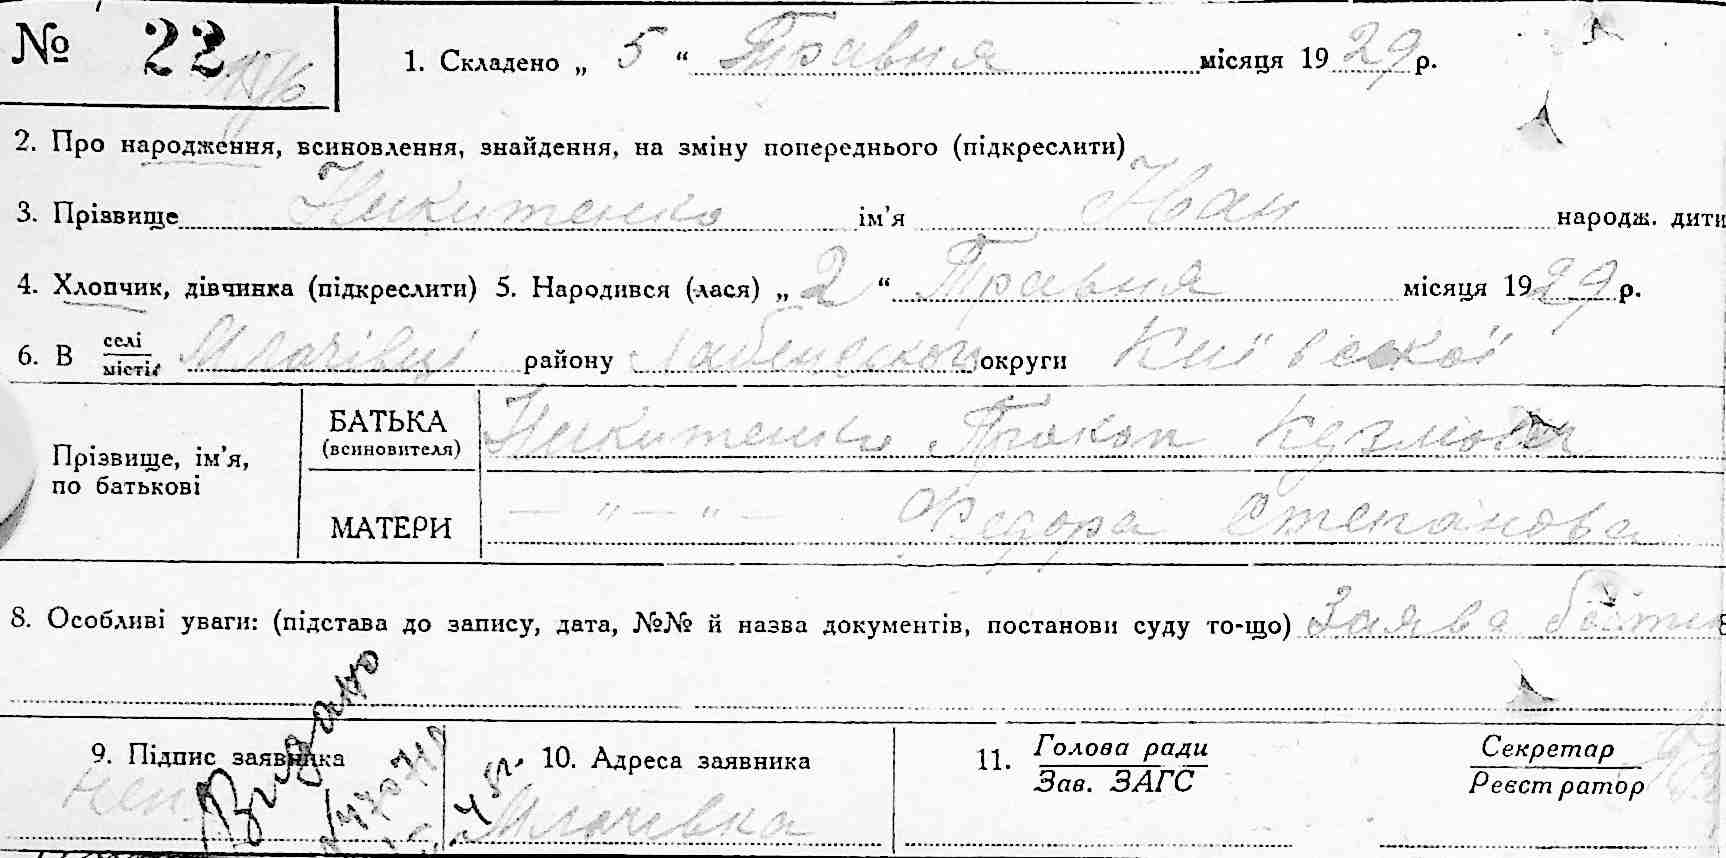 № 22
1. Складено „ 5 “ Травня місяця 1929 р.
2. Про народження, всиновлення, знайдення, на зміну попереднього (підкреслити)
3. Прізвище Никитенко ім’я Иван народж. дити
4. Хлопчик, дівчинка (підкреслити) 5. Народився (лася) „ 2 “ Травня місяця 1929 р.
6. В селі місті району округи Київської
Прізвище, ім’я, по батькові
БАТЬКА (всиновителя) Никитенко Прокоп
МАТЕРИ — „ — „ — Федора Степанова
8. Особливі уваги: (підстава до запису, дата, №№ й назва документів, постанови суду то-що) Заява
9. Підпис заявника
Видано
10. Адреса заявника
11. Голова ради Зав. ЗАГС
Секретар Реєстратор